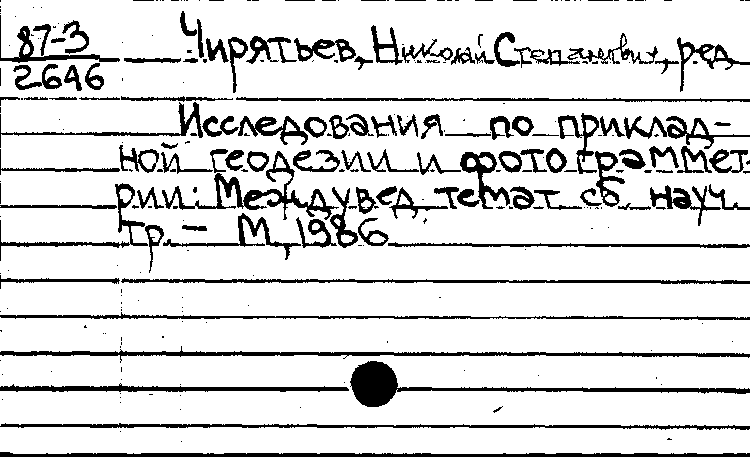 87-3
2646
Чирятьев, Николай Степанович, ред.
Исследования по приклад-
ной геодезии и фотограммет-
рии: Междувед. темат. сб. науч.
тр. - М., 1986